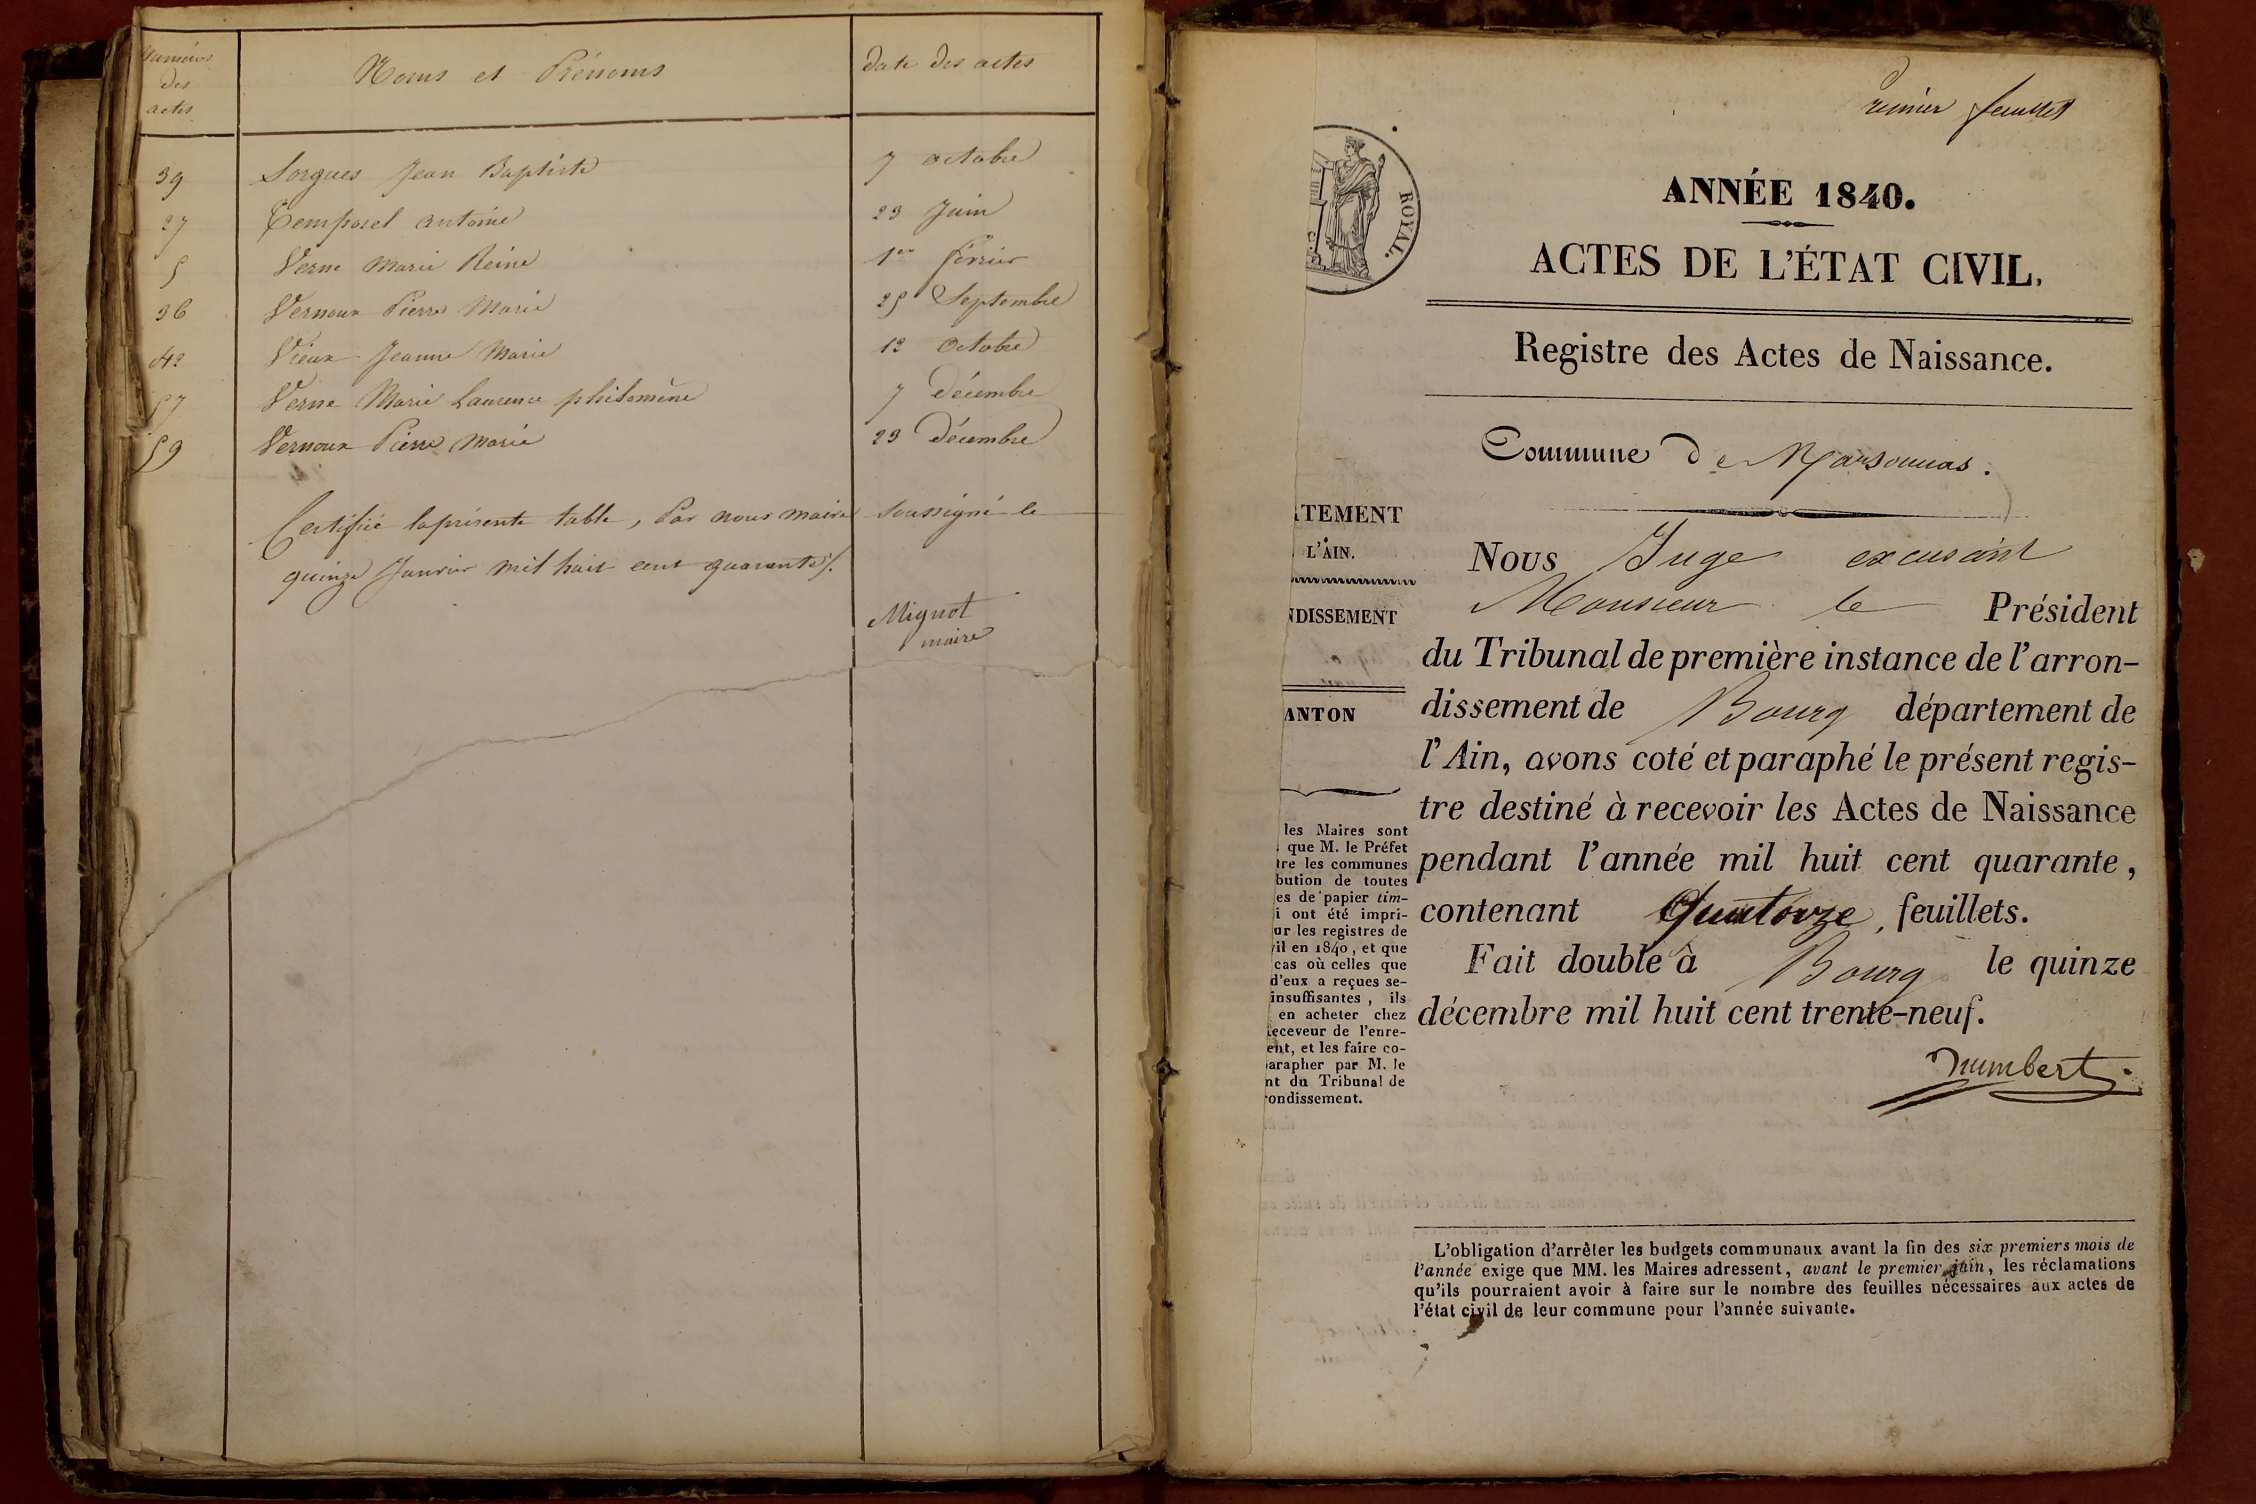 Numéros des actes
Noms et Prénoms
date des actes
39 Sorgues Jean Baptiste 7 octobre
27 Temporel antoine 23 Juin
5 Verne Marie Reine 1er février
36 Vernoux Pierre Marie 25 Septembre
42 Vieux Jeanne Marie 12 Octobre
57 Verne Marie Laurence philomène 7 Décembre
59 Vernoux Pierre Marie 23 Décembre
Certifié la présente table, Par nous maire soussigné le
quinze Janvier mil huit cent quarante /.
Mignot
maire
Premier feuillet
ROYAL.
ANNÉE 1840.
ACTES DE L'ÉTAT CIVIL.
Registre des Actes de Naissance.
Commune De Marsonnas.
TEMENT
L'AIN.
NDISSEMENT
ANTON
les Maires sont
que M. le Préfet
tre les communes
bution de toutes
es de papier tim-
i ont été impri-
ur les registres de
il en 1840, et que
cas où celles que
d'eux a reçues se-
insuffisantes, ils
en acheter chez
eceveur de l'enre-
ent, et les faire co-
arapher par M. le
nt du Tribunal de
ondissement.
Nous Juge excusant
Monsieur le Président
du Tribunal de première instance de l'arron-
dissement de Bourg département de
l'Ain, avons coté et paraphé le présent regis-
tre destiné à recevoir les Actes de Naissance
pendant l'année mil huit cent quarante,
contenant Quatorze, feuillets.
Fait double à Bourg le quinze
décembre mil huit cent trente-neuf.
L'obligation d'arrêter les budgets communaux avant la fin des six premiers mois de
l'année exige que MM. les Maires adressent, avant le premier juin, les réclamations
qu'ils pourraient avoir à faire sur le nombre des feuilles nécessaires aux actes de
l'état civil de leur commune pour l'année suivante.